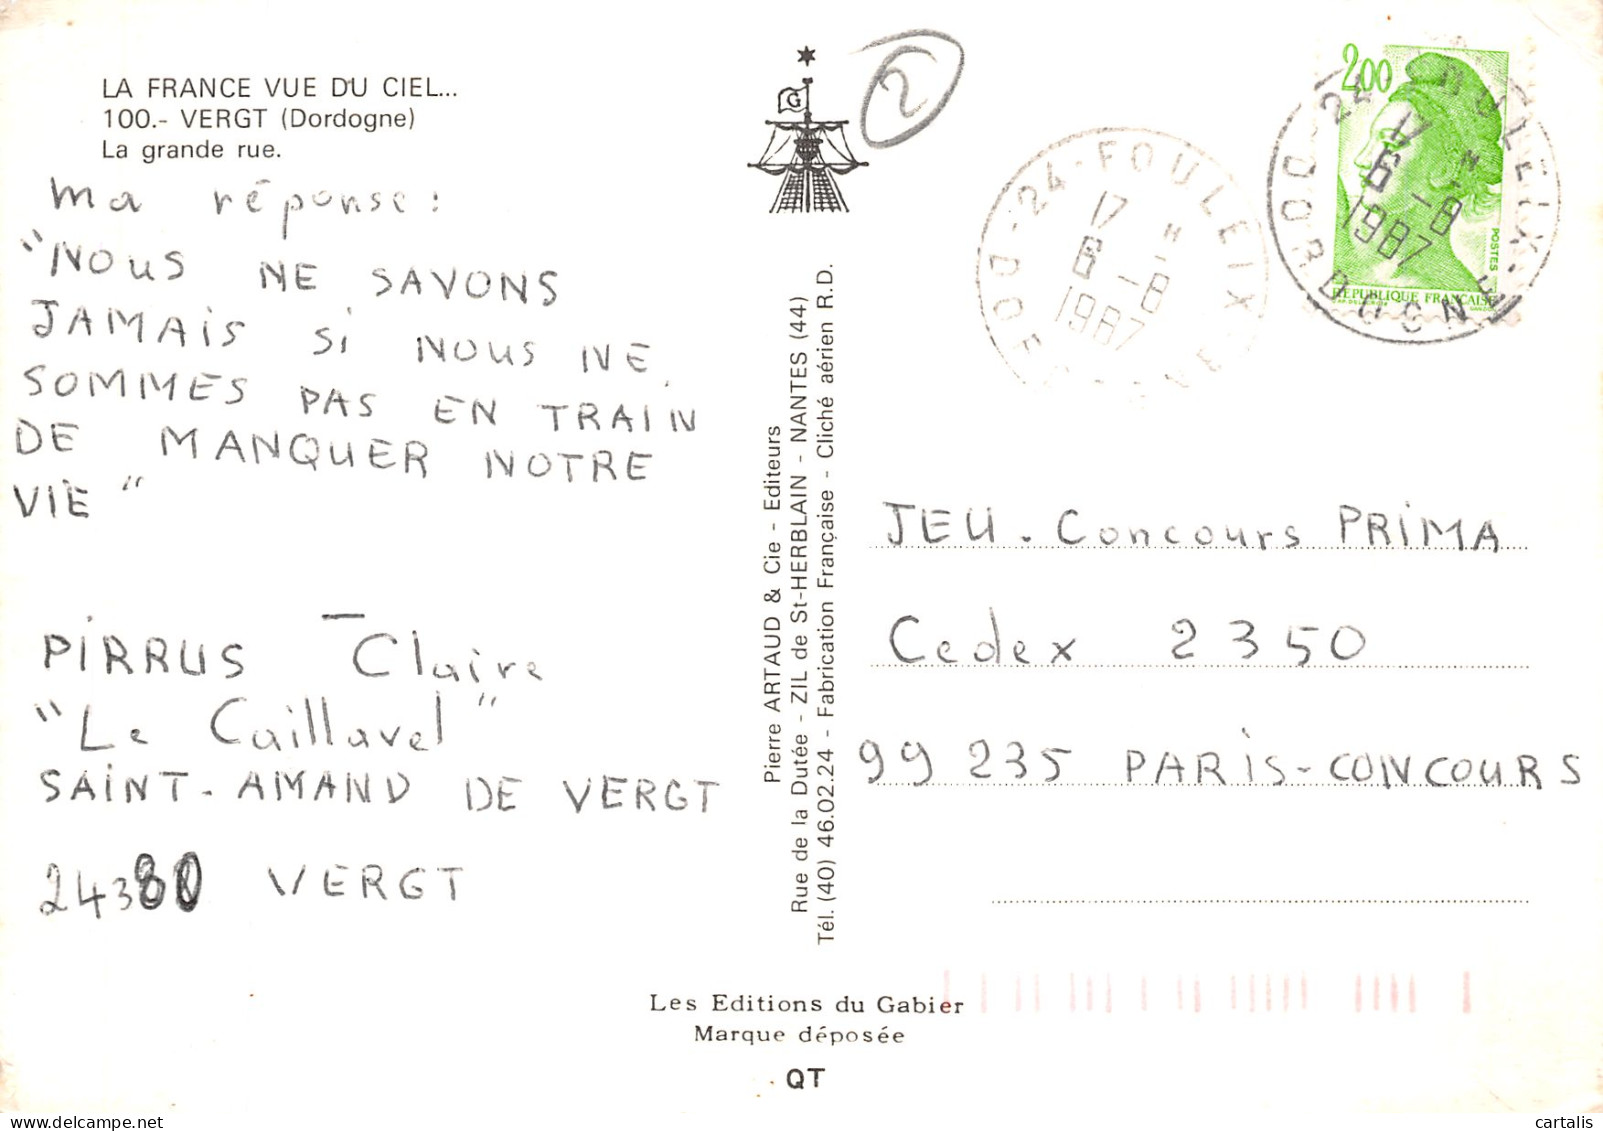 LA FRANCE VUE DU CIEL...
100.- VERGT (Dordogne)
La grande rue.
Ma réponse :
"NOUS NE SAVONS
JAMAIS SI NOUS NE
SOMMES PAS EN TRAIN
DE MANQUER NOTRE
VIE"
PIRRUS Claire
"Le Caillavel"
SAINT-AMAND DE VERGT
24380 VERGT
G
2
Pierre ARTAUD & Cie - Editeurs
Rue de la Dutée - ZIL de St-HERBLAIN - NANTES (44)
Tél. (40) 46.02.24 - Fabrication Française - Cliché aérien R.D.
24-FOULEIX
17 H
6 -8
1987
DORDOGNE
2,00
POSTES
REPUBLIQUE FRANÇAISE
24-FOULEIX
17 H
6 -8
1987
DORDOGNE
JEU. Concours PRIMA
Cedex 2350
99 235 PARIS-CONCOURS
Les Editions du Gabier
Marque déposée
QT
cartalis